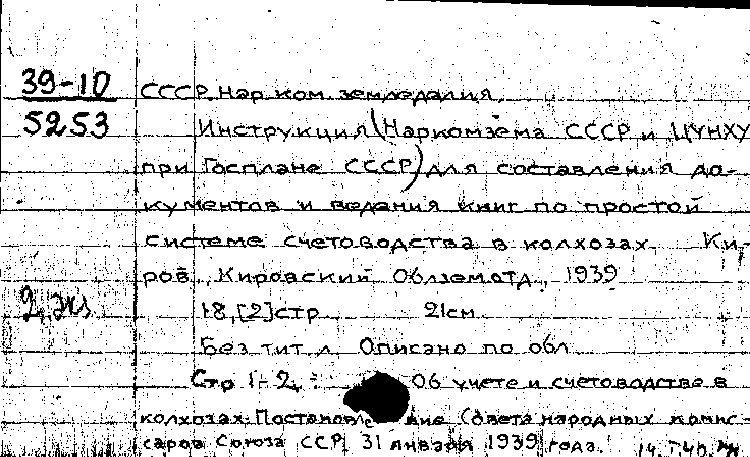 39-10 СССР. Нар. ком. земледелия.
5253 Инструкция (Наркомзема СССР и ЦУНХУ
при Госплане СССР) для составления до-
кументов и ведения книг по простой
системе счетоводства в колхозах. Ки-
ров, Кировский Облземотд., 1939
2 экз 18,[2]стр 21см
Без тит. л. Описано по обл.
Стр 1-2: Об учете и счетоводстве в
колхозах: Постановле ние Совета народных комис-
саров Союза ССР 31 января 1939 года.